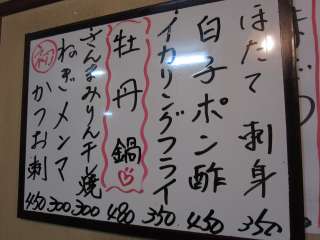 ほたて刺身 350
白子ポン酢 450
イカリングフライ 350
牡丹鍋 480
さんまみりん干焼 300
ねぎメンマ 300
かつお刺 450